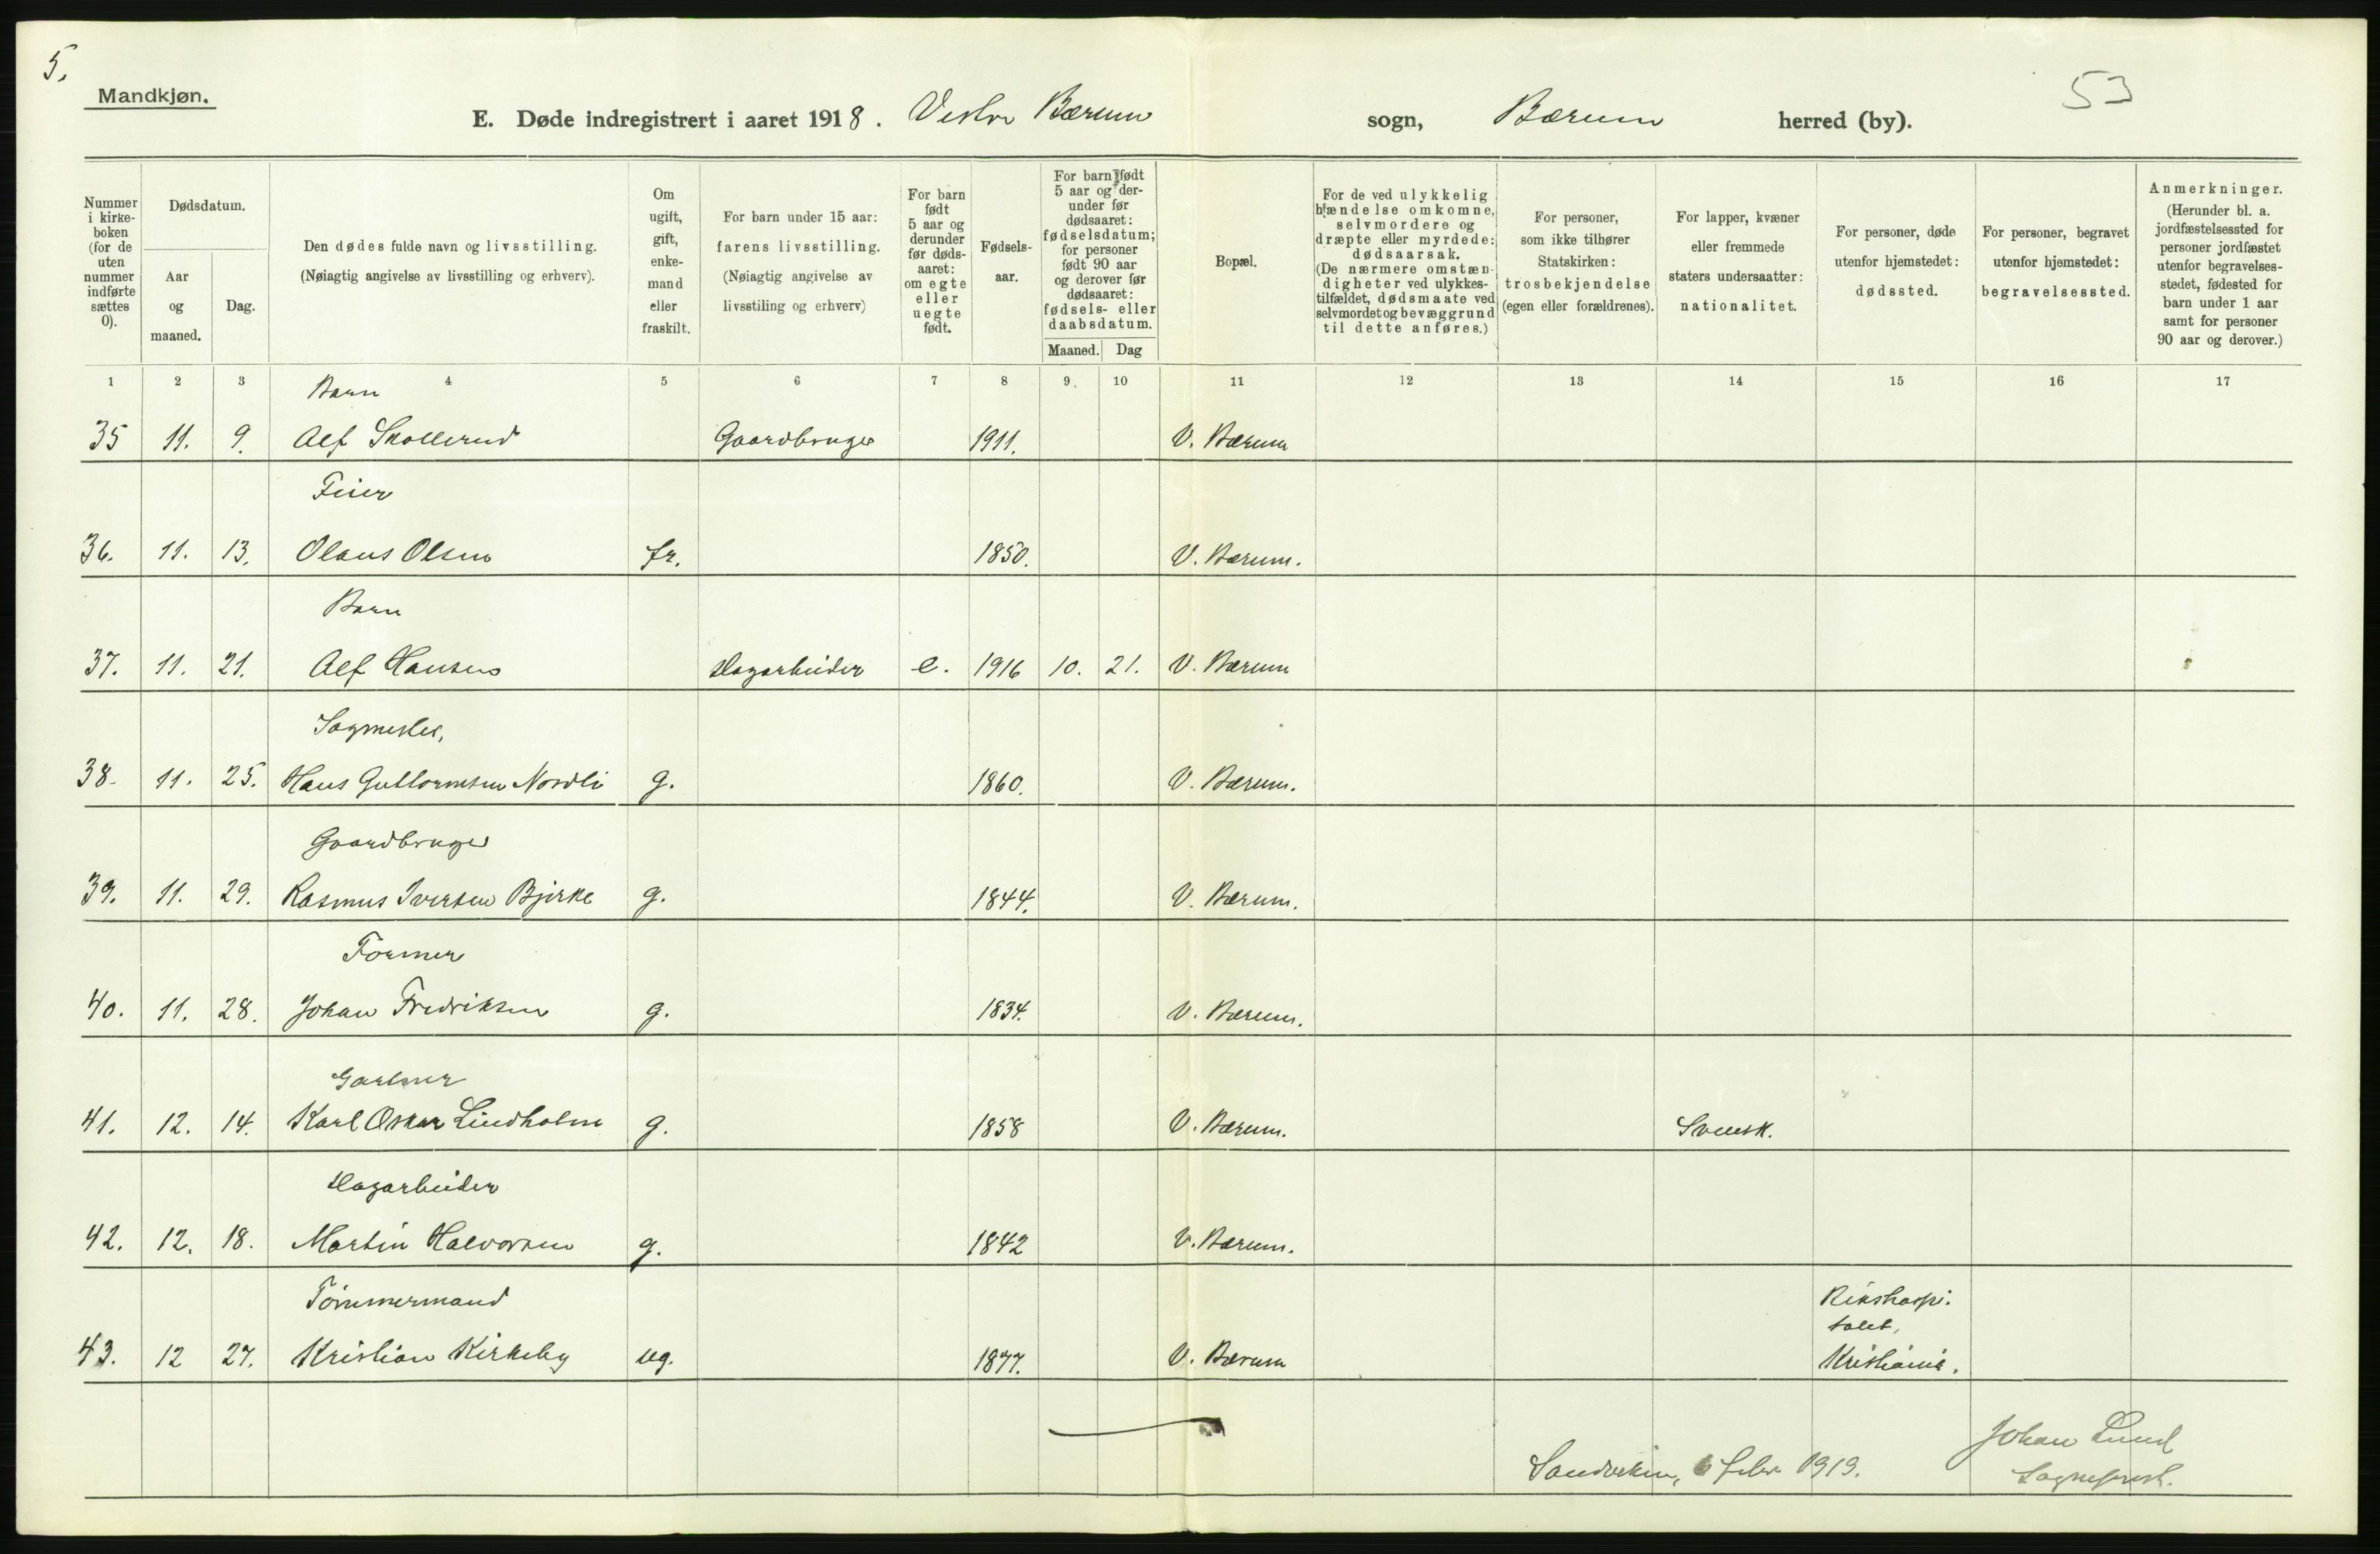 5.
Mandkjøn.
53
E. Døde indregistrert i aaret 1918. Vestre Bærum sogn, Bærum herred (by).
Nummer i kirke-boken (for de uten nummer indførte sættes 0).
Dødsdatum.
Aar og maaned.
Dag.
Den dødes fulde navn og livsstilling.
(Nøiagtig angivelse av livsstilling og erhverv).
Om ugift, gift, enke-mand eller fraskilt.
For barn under 15 aar: farens livsstilling.
(Nøiagtig angivelse av livsstiling og erhverv)
For barn født 5 aar og derunder før døds-aaret: om egte eller uegte født.
Fødsels-aar.
For barn født 5 aar og der-under før dødsaaret: fødselsdatum; for personer født 90 aar og derover før dødsaaret: fødsels- eller daabsdatum.
Maaned. Dag
Bopæl.
For de ved ulykkelig hændelse omkomne, selvmordere og dræpte eller myrdede: dødsaarsak.
(De nærmere omstæn-digheter ved ulykkes-tilfældet, dødsmaate ved selvmordet og bevæggrund til dette anføres.)
For personer, som ikke tilhører Statskirken: trosbekjendelse (egen eller forældrenes).
For lapper, kvæner eller fremmede staters undersaatter: nationalitet.
For personer, døde utenfor hjemstedet: dødssted.
For personer, begravet utenfor hjemstedet: begravelsessted.
Anmerkninger.
(Herunder bl. a. jordfæstelsessted for personer jordfæstet utenfor begravelses-stedet, fødested for barn under 1 aar samt for personer 90 aar og derover.)
1 2 3 4 5 6 7 8 9. 10 11 12 13 14 15 16 17
Barn
35 11. 9. Alf Skollerud Gaardbruger 1911. V. Bærum
Feier
36. 11. 13. Olaus Olsen fr. 1850. V. Bærum.
Barn
37. 11. 21. Alf Hansen Dagarbeider e. 1916 10. 21. V. Bærum
Sagmester,
38. 11. 25. Hans Guttormsen Nordli g. 1860. V. Bærum.
Gaardbruger
39. 11. 29. Rasmus Iversen Bjerke g. 1844. V. Bærum.
Former
40. 11. 28. Johan Fredriksen g. 1834. V. Bærum.
Gartner
41. 12. 14. Karl Oskar Lindholm g. 1858 V. Bærum. Svensk.
Dagarbeider
42. 12. 18. Martin Halvorsen g. 1842 V. Bærum.
Tømmermand
43. 12 27. Kristian Kirkeby ug. 1877. V. Bærum
Rikshospi-
talet,
Kristiania.
Sandviken, 6 febr 1919.
Johan Lund
Sogneprest.